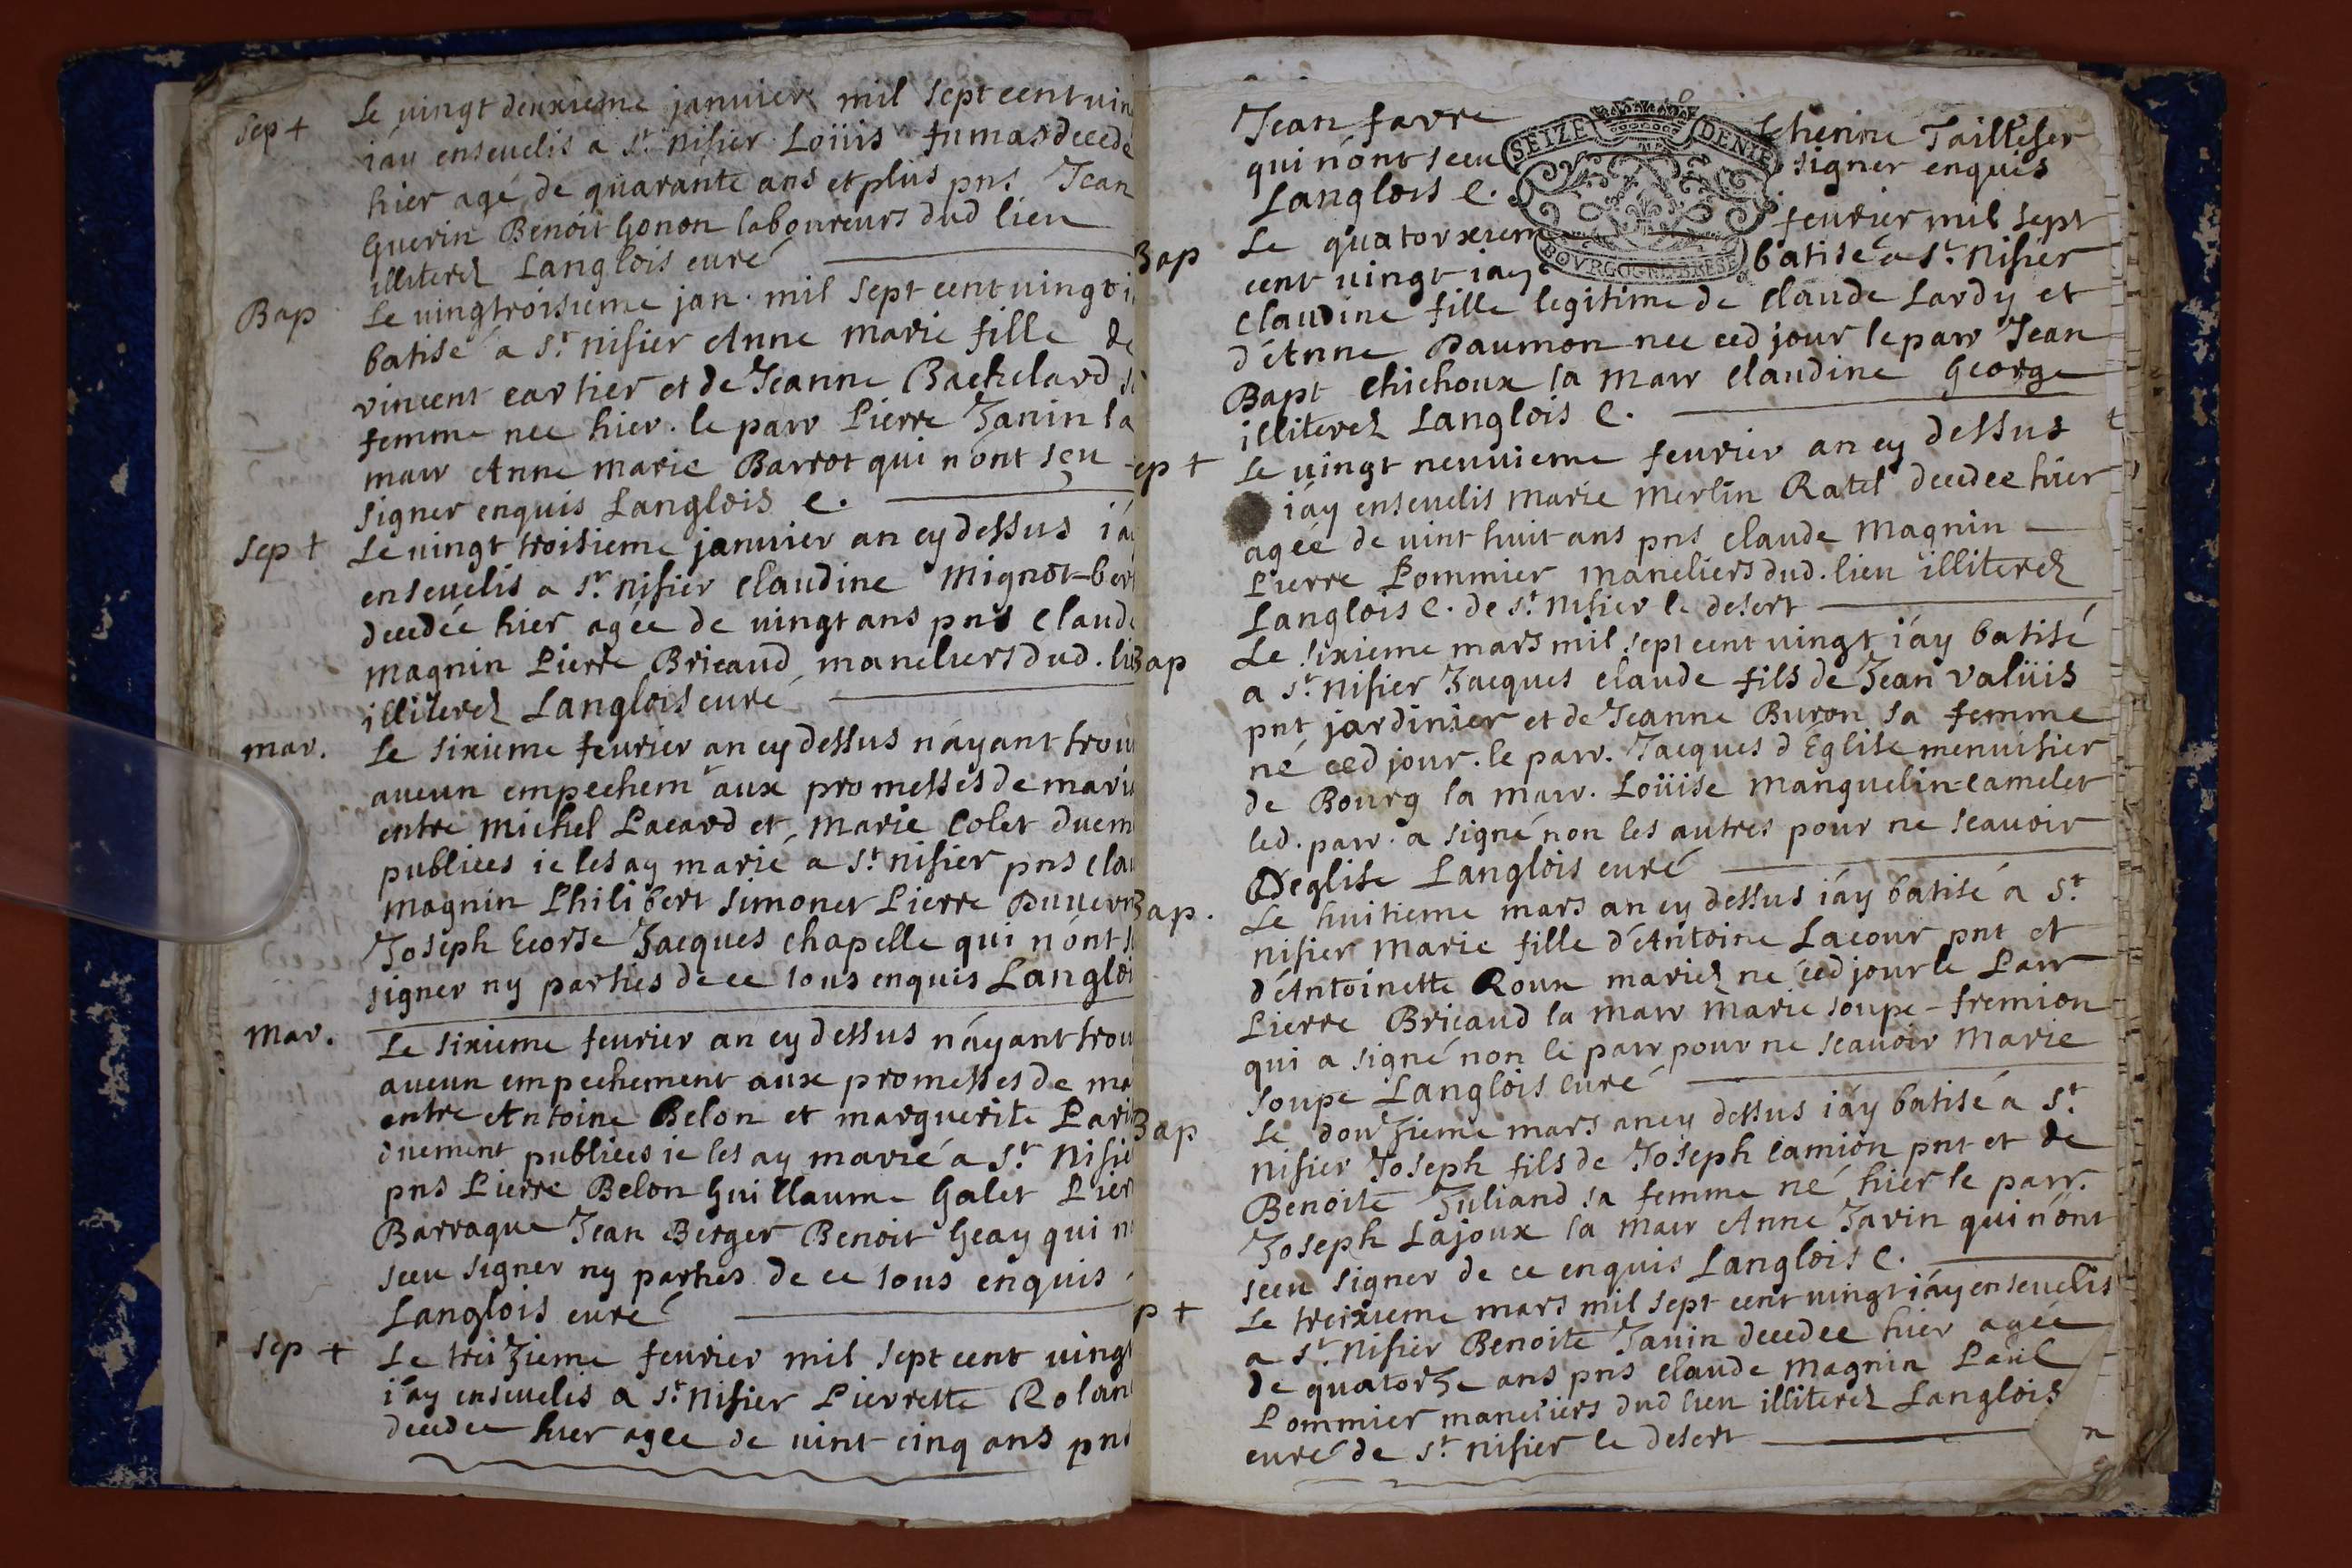 Sep +
Le vingt deuxieme janvier mil sept cent vin
iáy enseuelis a St. nisier Loüis fumas decede
hier agé de quarante ans et plus pns Jean
Guerin Benoit Gonon laboureurs dud lieu
illiterez Langlois curé
Bap
Le vingtroisieme jan. mil sept cent vingt i
batisé a St. nisier Anne marie fille de
vincent cartier et de Jeanne Bachelard s
femme nee hier. le parr Pierre Janin la
marr Anne marie Barrot qui n'ont sçu
signer enquis Langlois C.
Sep +
Le vingt troisieme janvier an cy dessus i'a
enseuelis a St. nisier Claudine Mignot-ber
decedée hier agée de vingt ans pns Claude
Magnin Pierre Bricaud maneliers dud. lie
illiterez Langlois curé
mar.
Le sixieme feurier an cy dessus n'ayant trou
aucun empechemt aux promesses de mari
entre michel Pacard et marie Colet duem
publiees ie les ay marié a St. nisier pns Cla
Magnin Philibert Simonet Pierre Duuern
Joseph Ecorse Jacques chapelle qui n'ont s
signer ny parties de ce sous enquis Langloi
Mar.
Le sixieme feurier an cy dessus n'ayant trou
aucun empechement aux promesses de ma
entre Antoine Belon et marguerite Pari
duement publiees ie les ay marié a St. Nisie
pns Pierre Belon Guillaume Galet Pier
Barraque Jean Berger Benoit Geay qui n
sceu signer ny parties de ce sous enquis
Langlois curé
Sep +
Le treizieme feurier mil sept cent vingt
i'ay enseuelis a St. Nisier Pierrette Rolan
decedee hier agee de vint cinq ans pns
Jean favre
therine Taillefer
qui n'ont sceu
signer enquis
Langlois C.
SEIZE DENIE
BOVRGOGNE BRESSE
Bap
Le quatorxiem
feurier mil sept
cent vingt iay
batisé a St. Nisier
Claudine fille legitime de Claude Lardy et
d'Anne Daumon nee ced jour le parr Jean
Bapt Chichoux la marr Claudine George
illiterez Langlois C.
ep +
Le vingt neuuieme feurier an cy dessus
iáy enseuelis marie merlin Ratel decedee hier
agée de vint huit ans pns claude Magnin
Pierre Pommier maneliers dud. lieu illiterez
Langlois C. de St. nisier le desert
Bap
Le sixieme mars mil sept cent vingt i'ay batisé
a St. nisier Jacques claude fils de Jean valüis
pnt jardinier et de Jeanne Buron sa femme
né ced jour. le parr. Jacques d'Eglise menuisier
de Bourg la marr. Loüise manguelin-camelet
led. parr. a signé non les autres pour ne scauoir
Deglise Langlois curé
Bap.
Le huitieme mars an cy dessus iáy batisé a St.
nisier Marie fille d'Antoine Lacour pnt et
d'Antoinette Roux mariez né ced jour le Parr
Pierre Bricaud la marr marie soupe-fremion
qui a signé non le parr pour ne scauoir Marie
Soupe Langlois Curé
Bap
Le douzieme mars an cy dessus iáy batisé a St.
Nisier Joseph fils de Joseph Camion pnt et de
Benoite Juliand sa femme né hier le parr.
Joseph Lajoux la marr Anne Javin qui n'ont
sceu signer de ce enquis Langlois C.
p +
Le treixieme mars mil sept cent vingt iáy enseuelis
a St. Nisier Benoite Janin decedee hier agée
de quatorze ans pns claude Magnin Paul
Pommier maneliers dud lieu illiterez Langlois
curé de St. nisier le desert